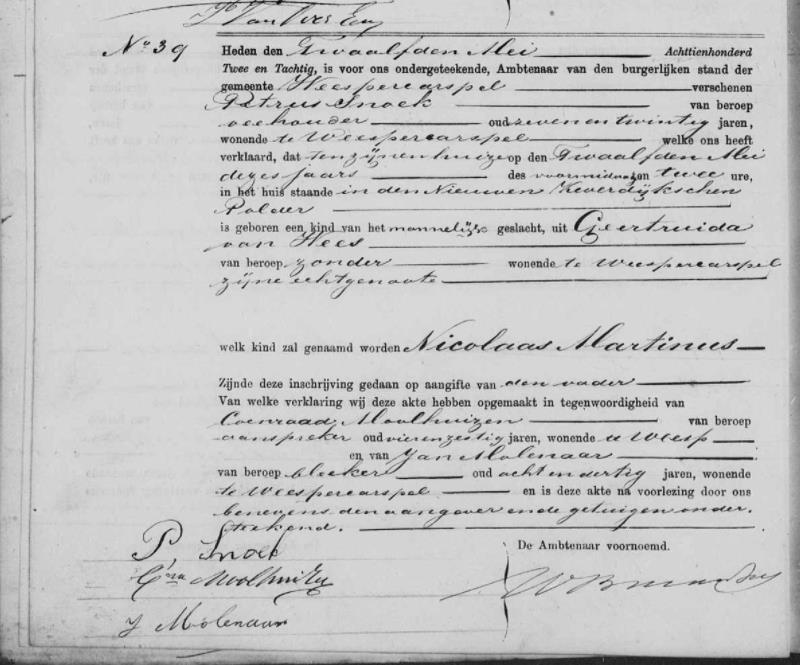 No 39
Heden den Twaalfden Mei Achttienhonderd
Twee en Tachtig, is voor ons ondergeteekende, Ambtenaar van den burgerlijken stand der
gemeente Weespercarspel verschenen
Petrus Snoek van beroep
veehouder oud zeven en twintig jaren,
wonende te Weespercarspel welke ons heeft
verklaard, dat ten zijnen huize op den Twaalfden Mei
dezes jaars des voormiddags ten twee ure,
in het huis staande in den Nieuwen Keverdijkschen
Polder
is geboren een kind van het mannelijke geslacht, uit Geertruida
van Hees
van beroep zonder wonende te Weespercarspel
zijne echtgenoote
welk kind zal genaamd worden Nicolaas Martinus
Zijnde deze inschrijving gedaan op aangifte van den vader
Van welke verklaring wij deze akte hebben opgemaakt in tegenwoordigheid van
Coenraad Moolhuizen van beroep
aanspreker oud vierenzestig jaren, wonende te Weesp
en van Jan Molenaar
van beroep bleeker oud acht en dertig jaren, wonende
te Weespercarspel en is deze akte na voorlezing door ons
benevens den aangever en de getuigen onder-
teekend.
P. Snoek
De Ambtenaar voornoemd.
Moolhuizen
J Molenaar